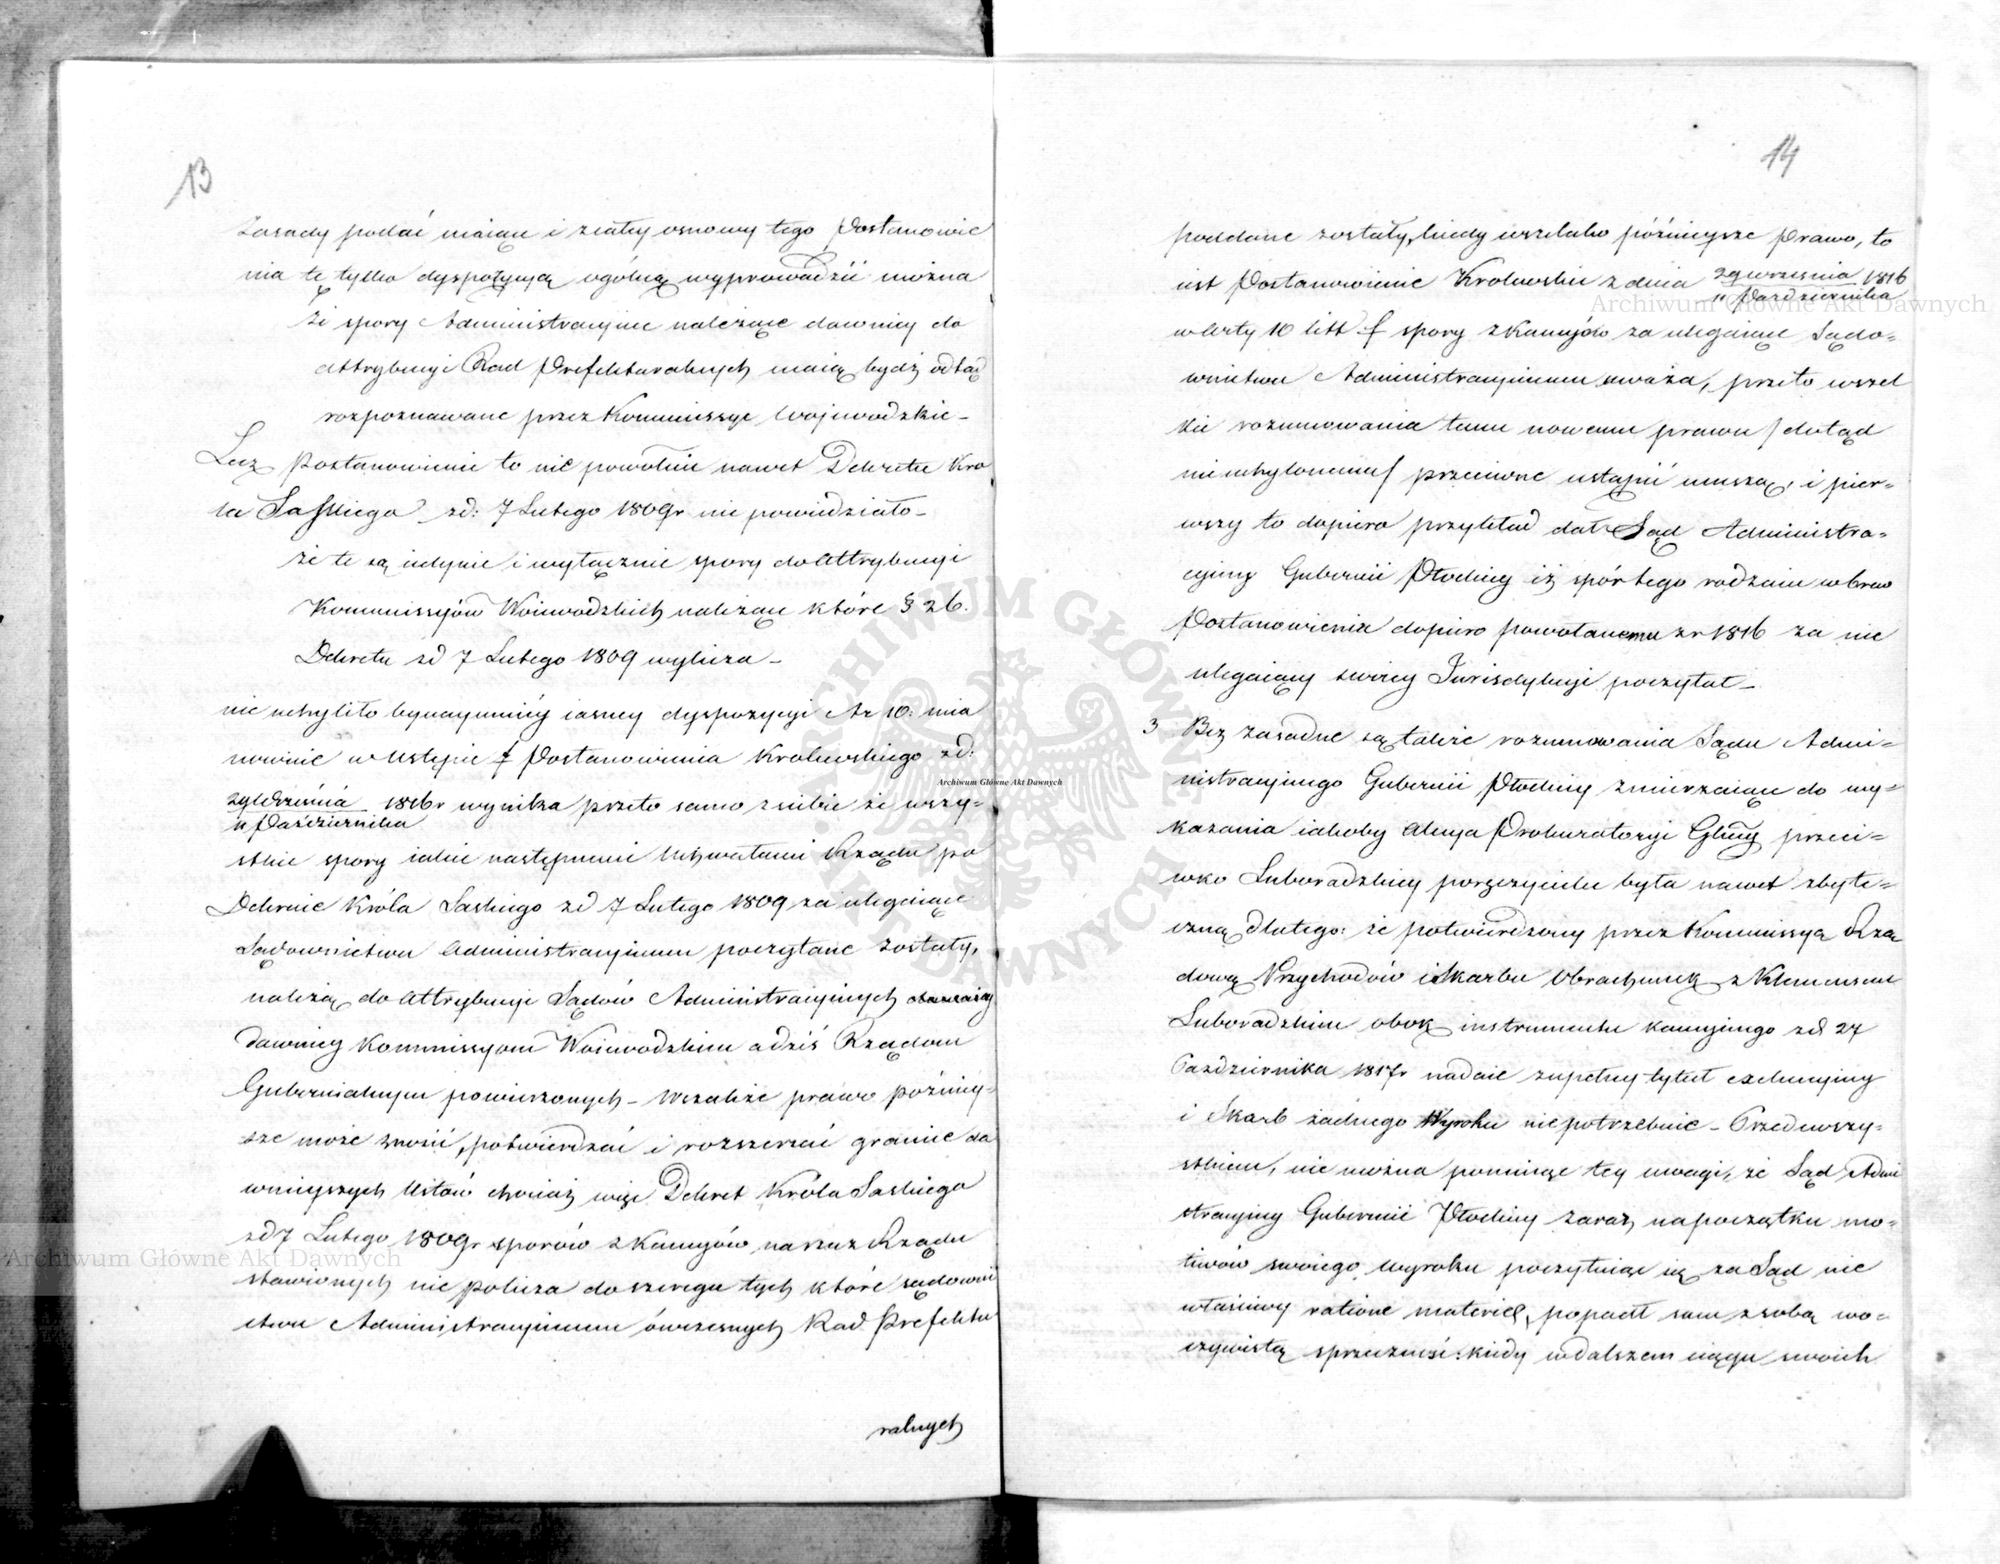 13
zasady podać maiące i z całey osnowy tego Postanowie
nia tę tylko dyspozycyą ogólną wyprowadzić można
że spory Administracyjne należące dawniey do
attrybucyi Rad Prefekturalnych maią bydź odtąd
rozpoznawane przez Kommissye Wojewodzkie –
Lecz postanowienie to nie powołuie nawet Dekretu Kró
la Saskiego zd: 7 Lutego 1809r nie powiedziało –
że te są iedynie i wyłącznie spory do attrybucyi
Kommissyów Woiewodzkich należące które § 26.
Dekretu zd 7 Lutego 1809 wylicza –
nie uchyliło bynaymniéy iasney dyspozycyi Ar 10: mia
nowicie w ustępie f Postanowienia Królewskiego zd:
29 Września
11 Października 1816r wynika przeto samo z siebie że wszy=
stkie spory iakie następnemi Uchwałami Rządu po
Dekrecie Króla Saskiego zd 7 Lutego 1809 za ulegaiące
Sądownictwu Administracyinemu poczytane zostały,
należą do attrybucyi Sądów Administracyinych
dawniey Kommissyom Woiewodzkim a dziś Rządom
Gubernialnym powierzonych – Wszakże prawo późniey=
sze może znosić, potwierdzać i rozszerzać granice da
wnieyszych Ustaw chociaż więc Dekret Króla Saskiego
zd 7 Lutego 1809r sporów z Kaucyów na rzecz Rządu
stawionych nie policza do szeregu tych które sądowni
ctwu Administracyinemu ówczesnych Rad Prefektu
ralnych
14
poddane zostały, kiedy wszelako późnieysze Prawo, to
iest Postanowienie Królewskie z dnia 29 września 1816
11 Października
w Arty 10 litt f spory z Kaucyów za ulegaiące Sądo=
wnictwu Administracyinemu uważa, przeto wszel
kie rozumowania temu nowemu prawu / dotąd
nieuchylonemu / przeciwne ustąpić muszą, i pier=
wszy to dopiero przykład dał Sąd Administra=
cyiny Gubernii Płockiey iż spór tego rodzaiu wbrew
Postanowienia dopiero powołanemu z r 1816 za nie
ulegaiący swoiey Jurisdykcyi poczytał –
3 Bez zasadne są także rozumowania Sądu Admi=
nistracyinego Gubernii Płockiey zmierzaiące do wy=
kazania iakoby akcya Prokuratoryi Głney przeci=
wko Luboradzkiey poręczycielce była nawet zbyte=
czną dlatego: że potwierdzony przez Kommissyą Rzą
dową Przychodów i Skarbu Obrachunek z Klemensem
Luboradzkim obok instrumentu kaucyinego zd 27
Października 1817r nadaie zupełny tytuł exekucyiny
i Skarb żadnego Wyroku niepotrzebuie – Przedewszy=
stkiem, nie można pominąć tey uwagi, że Sąd Admi
stracyiny Gubernii Płockiey zaraz na początku mo=
tiwów swoiego wyroku poczytuiąc się za Sąd nie
właściwy ratione materiae, popadł sam z sobą w o=
czywistą sprzeczność: kiedy w dalszem ciągu swoich
Archiwum Główne Akt Dawnych
Archiwum Główne Akt Dawnych
Archiwum Główne Akt Dawnych
ARCHIWUM GŁÓWNE AKT DAWNYCH